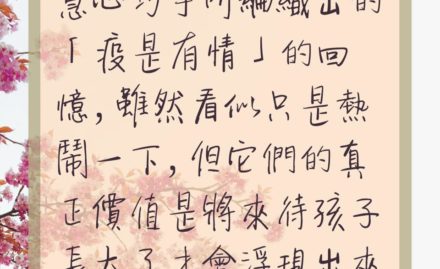 慧心巧手所編織出的
「疫是有情」的回
憶,雖然看似只是熱
鬧一下,但它們的真
正價值是將來待孩子
長大了才會浮現出來